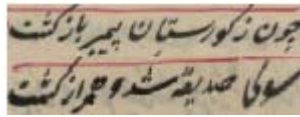 چون ز کورستان پیمبر باز کشت
سوی صدیقه شد و همراز کشت